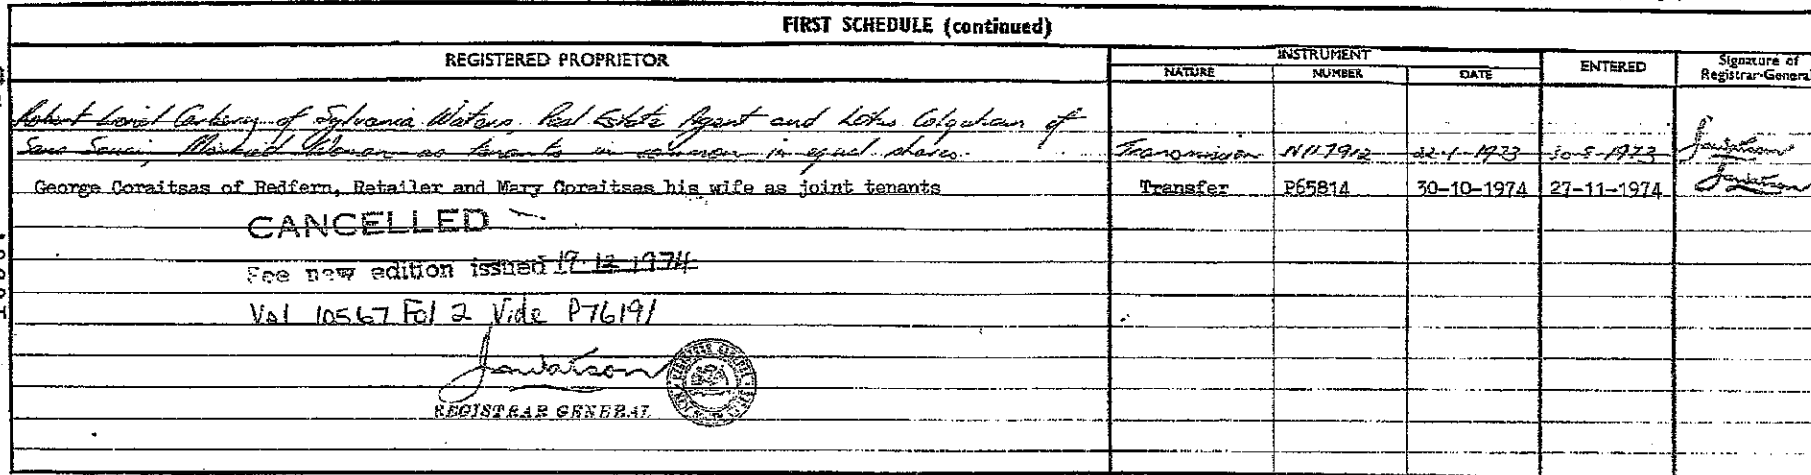 FIRST SCHEDULE (continued)
REGISTERED PROPRIETOR
INSTRUMENT
NATURE NUMBER DATE
ENTERED
Signature of
Registrar-General
Robert of Sylvania Waters Real Estate Agent and of
Sans Souci, Married Woman as tenants in common in equal shares. Transmission N117912 22-1-1973 1973 Jawatson
George Coraitsas of Redfern, Retailer and Mary Coraitsas his wife as joint tenants Transfer P65814 30-10-1974 27-11-1974 Jawatson
CANCELLED
See new edition issued 17-12-1974
Vol 10567 Fol 2 Vide P76191
Jawatson
REGISTRAR GENERAL